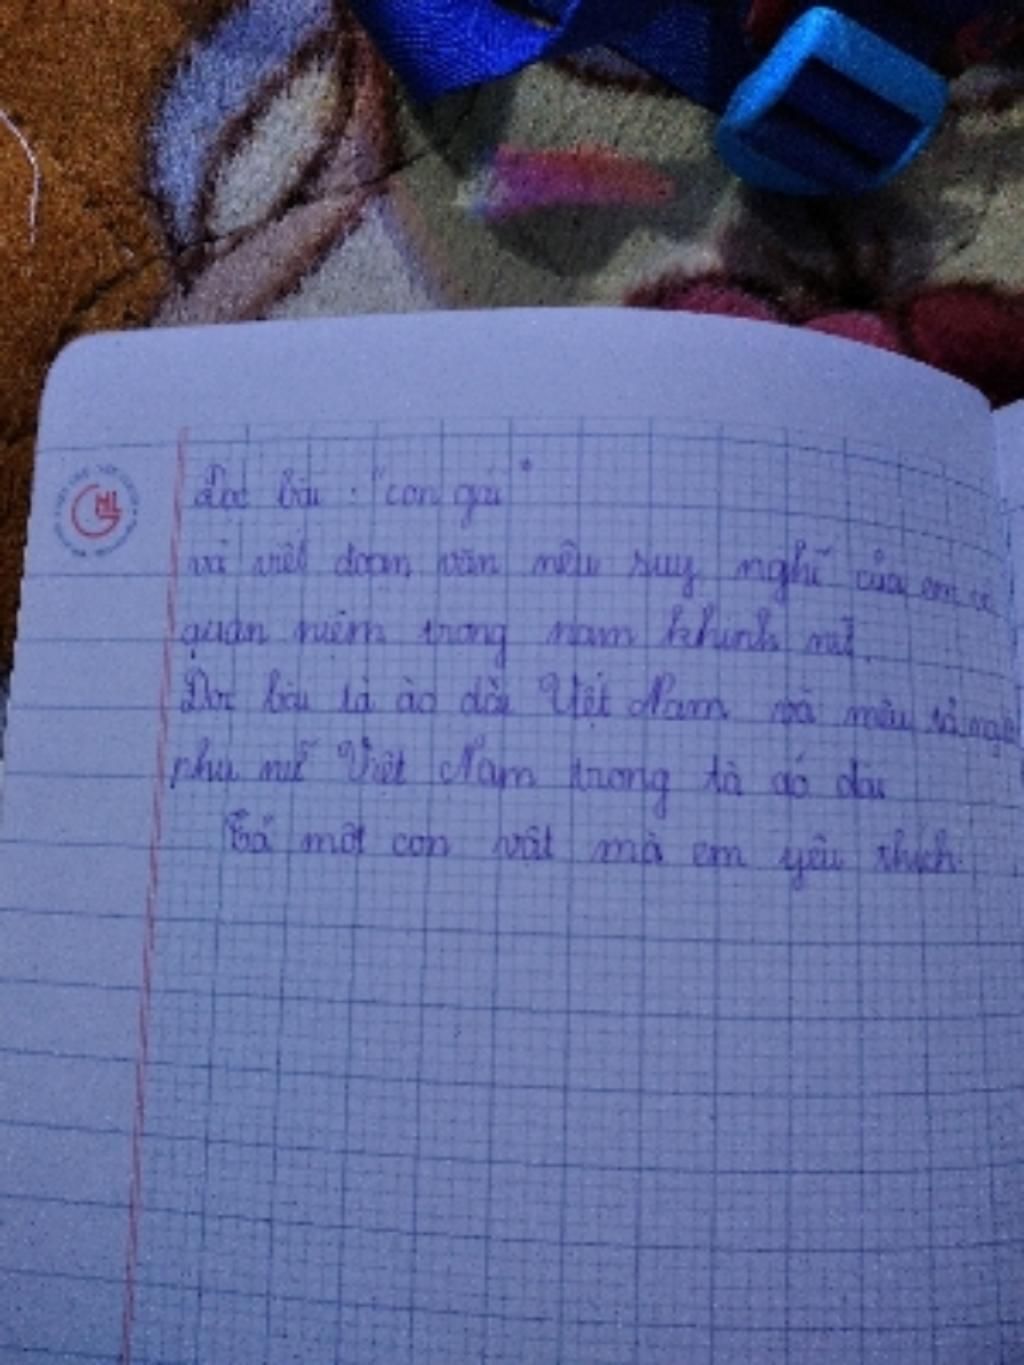 Đọc bài : "con gái"
và viết đoạn văn nêu suy nghĩ của em về
quan niệm trọng nam khinh nữ.
Đọc bài tà áo dài Việt Nam và
phụ nữ Việt Nam trong tà áo dài
Tả một con vật mà em yêu thích.